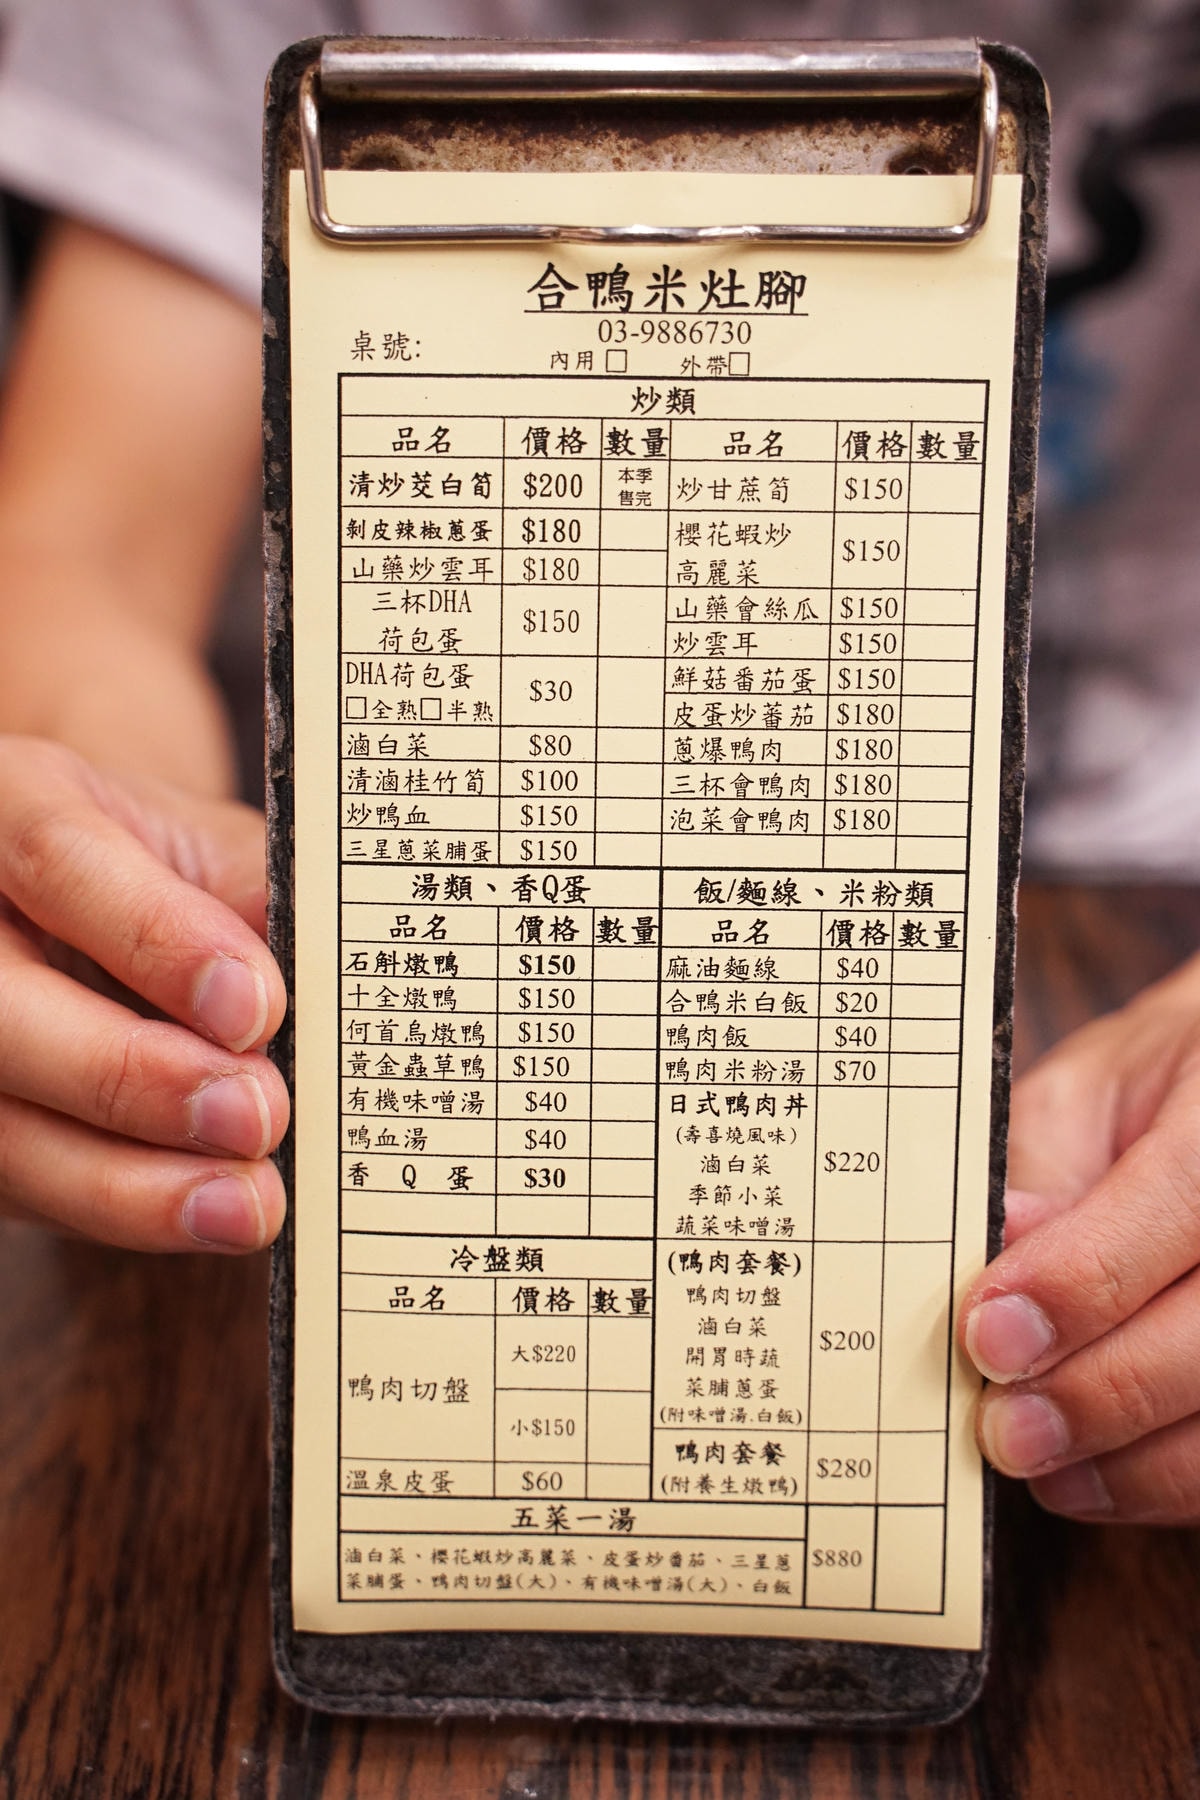 合鴨米灶腳
03-9886730
桌號:
內用 □ 外帶□
炒類
品名 價格 數量 品名 價格 數量
清炒茭白筍 $200 本季售完 炒甘蔗筍 $150
剝皮辣椒蔥蛋 $180 櫻花蝦炒高麗菜 $150
山藥炒雲耳 $180 山藥會絲瓜 $150
三杯DHA荷包蛋 $150 炒雲耳 $150
DHA荷包蛋 □全熟□半熟 $30 鮮菇番茄蛋 $150
皮蛋炒蕃茄 $180
滷白菜 $80 蔥爆鴨肉 $180
清滷桂竹筍 $100 三杯會鴨肉 $180
炒鴨血 $150 泡菜會鴨肉 $180
三星蔥菜脯蛋 $150
湯類、香Q蛋
品名 價格 數量
石斛燉鴨 $150
十全燉鴨 $150
何首烏燉鴨 $150
黃金蟲草鴨 $150
有機味噌湯 $40
鴨血湯 $40
香 Q 蛋 $30
冷盤類
品名 價格 數量
鴨肉切盤 大$220
小$150
溫泉皮蛋 $60
飯/麵線、米粉類
品名 價格 數量
麻油麵線 $40
合鴨米白飯 $20
鴨肉飯 $40
鴨肉米粉湯 $70
日式鴨肉丼
(壽喜燒風味)
滷白菜 $220
季節小菜
蔬菜味噌湯
(鴨肉套餐)
鴨肉切盤
滷白菜
開胃時蔬 $200
菜脯蔥蛋
(附味噌湯.白飯)
鴨肉套餐 $280
(附養生燉鴨)
五菜一湯
滷白菜、櫻花蝦炒高麗菜、皮蛋炒番茄、三星蔥 $880
菜脯蛋、鴨肉切盤(大)、有機味噌湯(大)、白飯